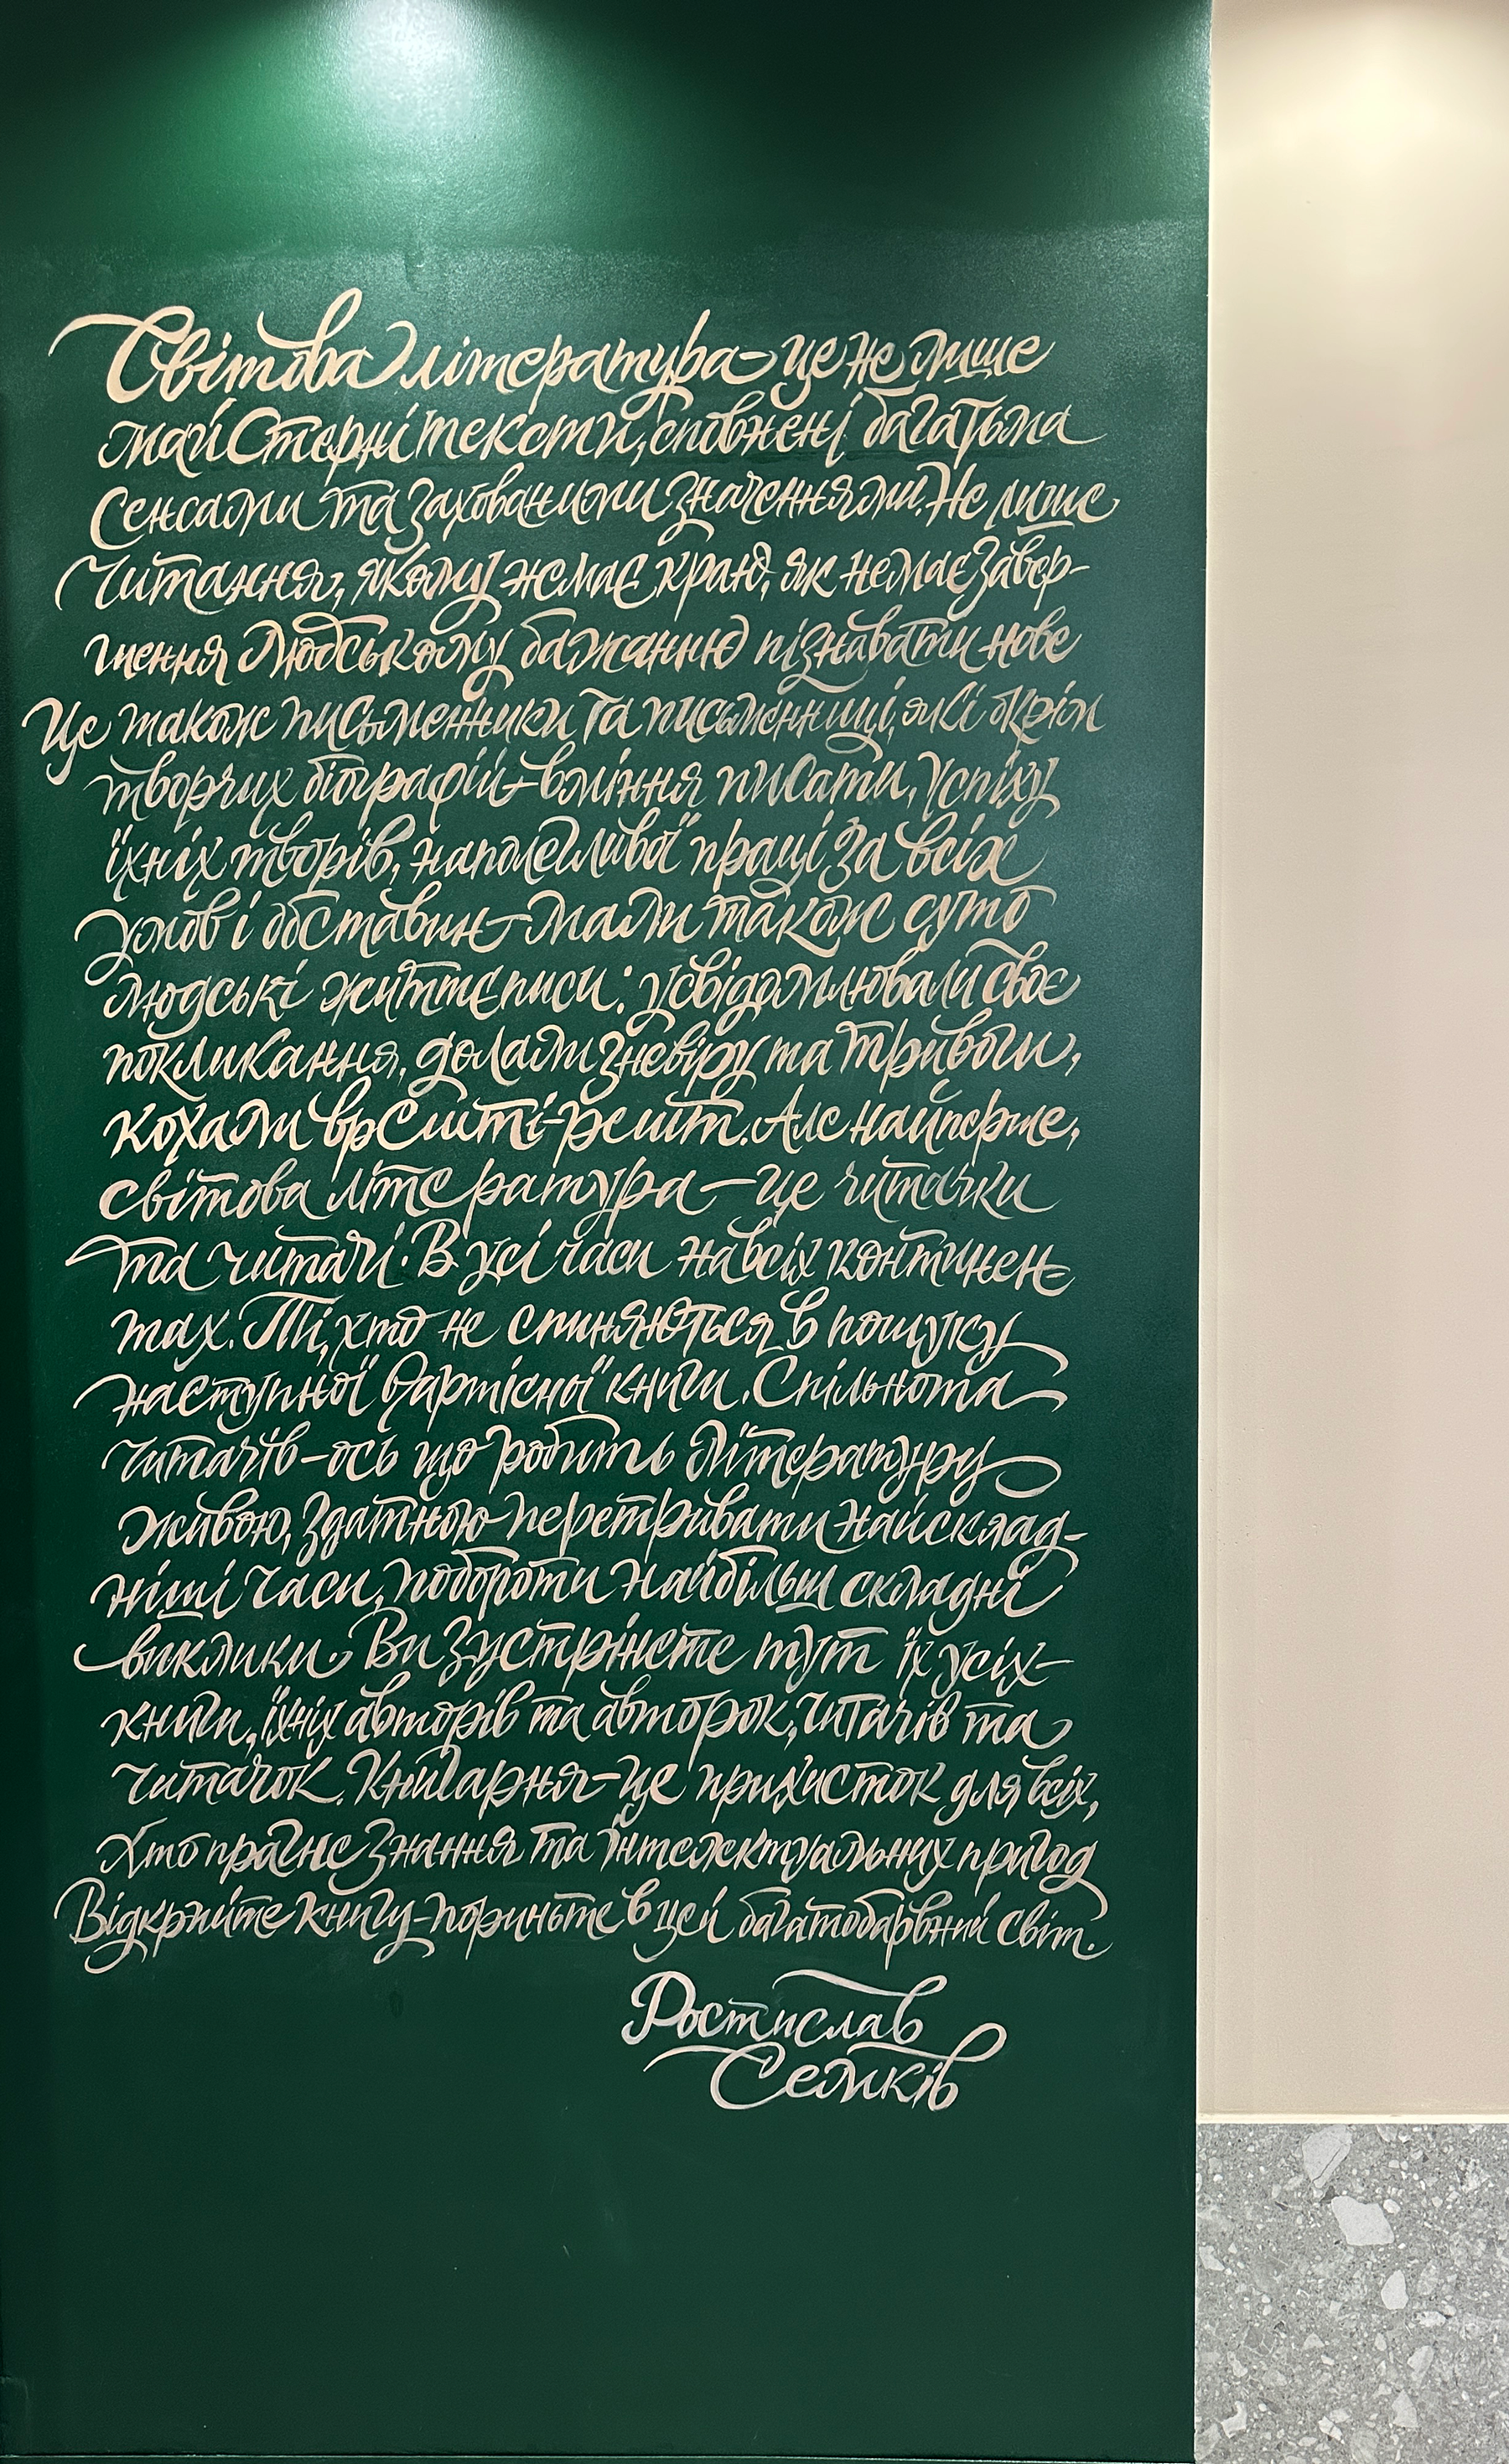 Світова література – це не лише
майстерні тексти, сповнені багатьма
сенсами та захованими значеннями. Не лише
читання, якому немає краю, як немає завер-
шення людському бажанню пізнавати нове
Це також письменники та письменниці, які окрім
творчих біографій – вміння писати, успіху
їхніх творів, наполегливої праці за всіх
умов і обставин – мали також суто
людські життєписи: усвідомлювали своє
покликання, долали зневіру та тривоги,
кохали врешті-решт. Але найперше,
світова література – це читачки
та читачі. В усі часи на всіх континен-
тах. Ті, хто не спиняються в пошуку
наступної вартісної книги. Спільнота
читачів – ось що робить літературу
живою, здатною перетривати найсклад-
ніші часи, побороти найбільш складні
виклики. Ви зустрінете тут їх усіх –
книги, їхніх авторів та авторок, читачів та
читачок. Книгарня – це прихисток для всіх,
хто прагне знання та інтелектуальних пригод
Відкрийте книгу – пориньте в цей багатобарвний світ.
Ростислав
Семків